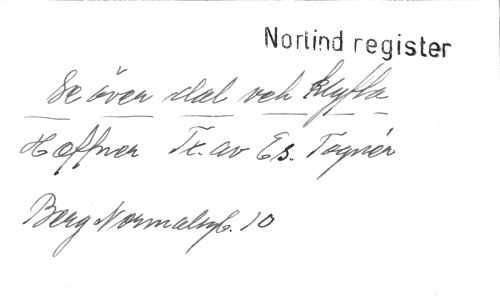 Norlind register
Se över dal och klyfta
Hæffner Tx. av Es. Tegnér
Berg Normalsgb. 10